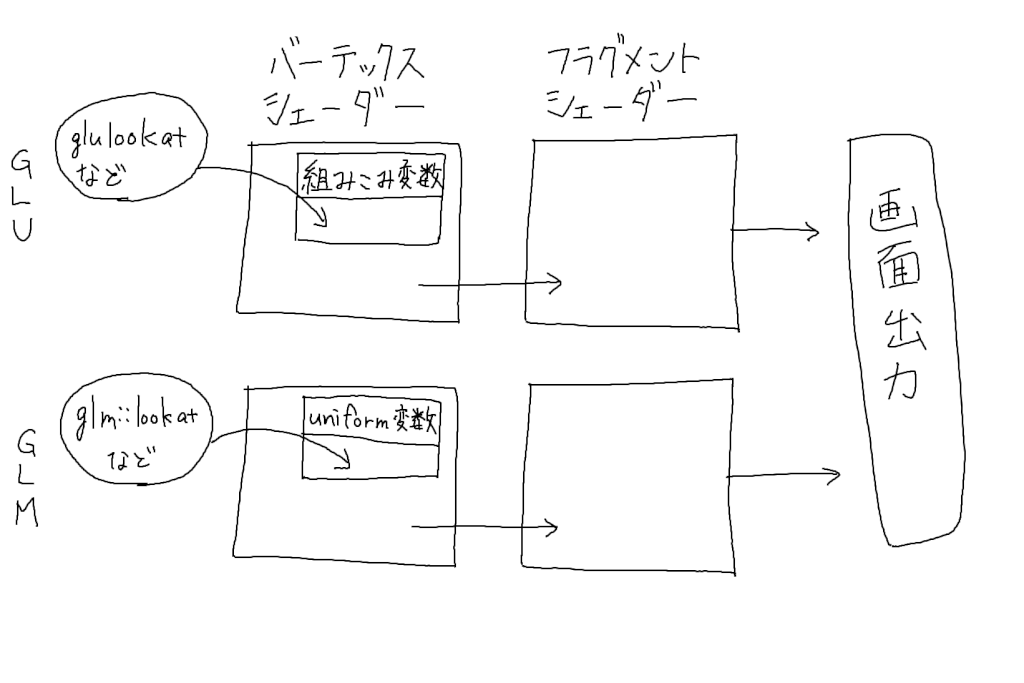 バーテックス
シェーダー
フラグメント
シェーダー
GLU
glulookat
など
組みこみ変数
画面出力
GLM
glm::lookat
など
uniform変数